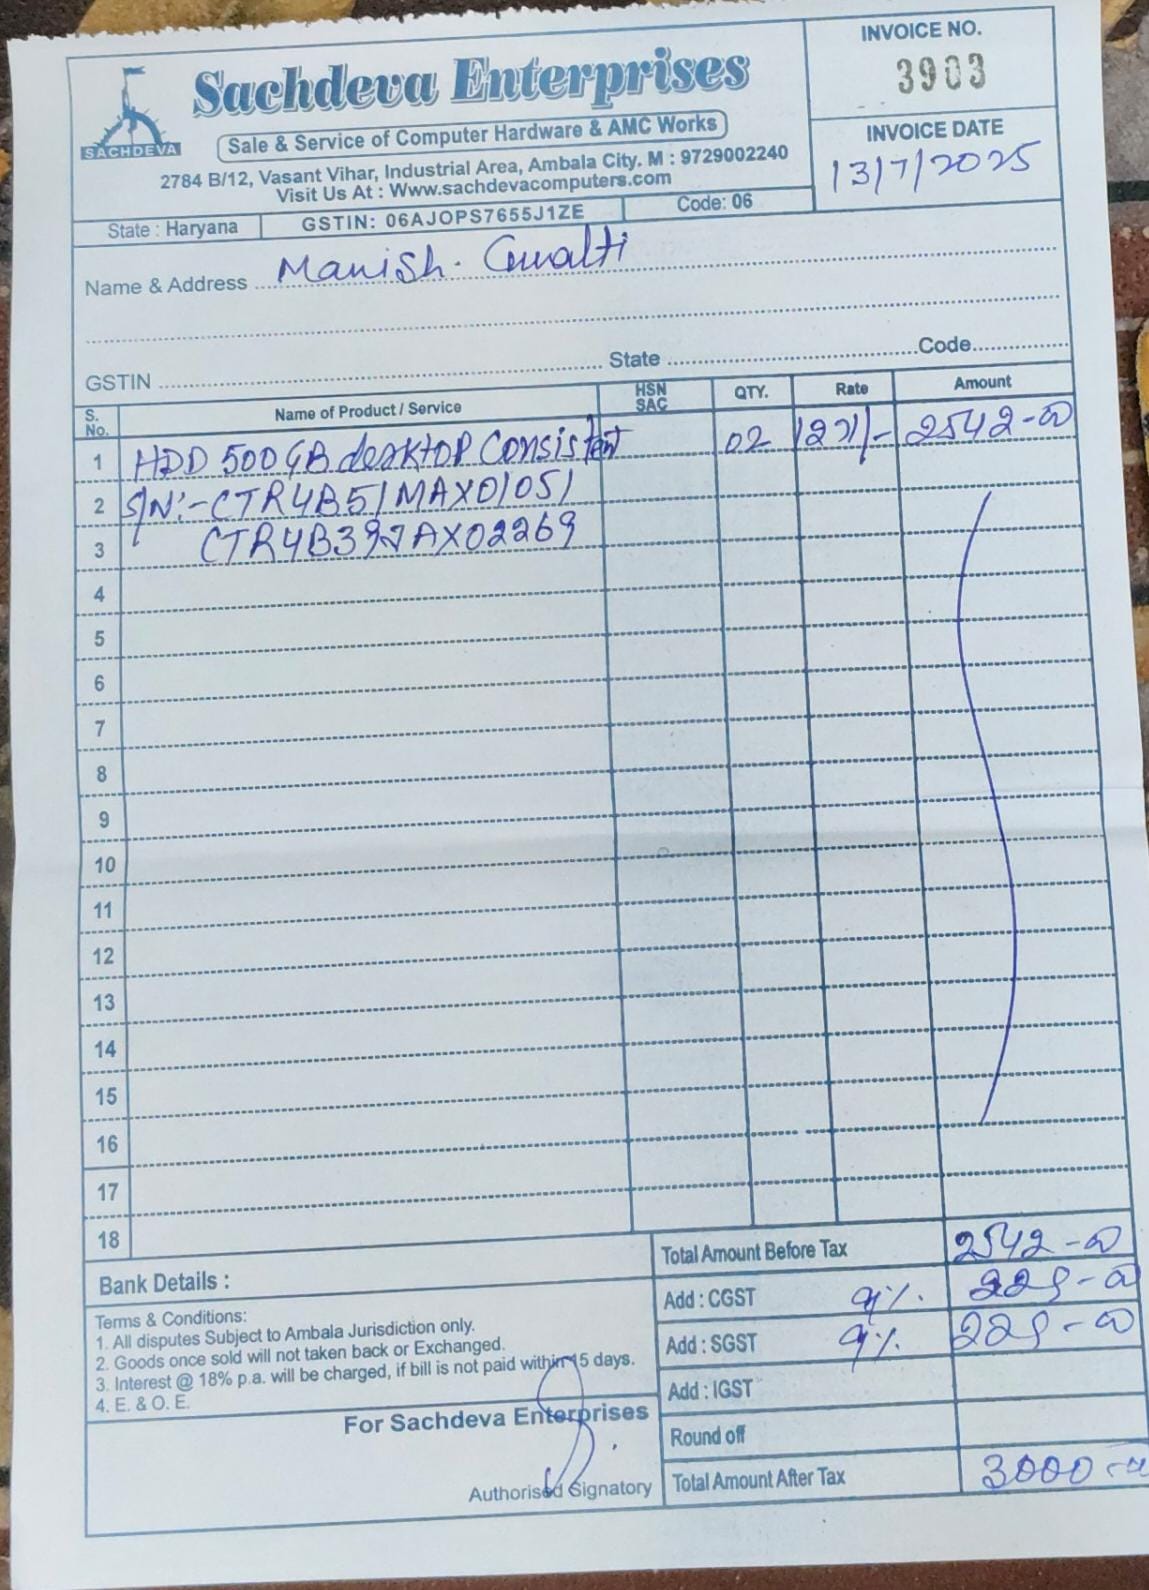 INVOICE NO.
3903
INVOICE DATE
13/7/2025
SACHDEVA
Sachdeva Enterprises
Sale & Service of Computer Hardware & AMC Works
2784 B/12, Vasant Vihar, Industrial Area, Ambala City. M : 9729002240
Visit Us At : Www.sachdevacomputers.com
State : Haryana GSTIN: 06AJOPS7655J1ZE Code: 06
Name & Address Manish.
GSTIN State Code
S. No. Name of Product / Service HSN SAC QTY. Rate Amount
1 HDD 500GB desktop Consistent 02 1271/- 2542-00
2 S/N:-CTR4B51MAX01051
3 CTR4B39JAX02269
4
5
6
7
8
9
10
11
12
13
14
15
16
17
18
Total Amount Before Tax 2542-00
Bank Details :
Add : CGST 9%. 229-00
Terms & Conditions:
1. All disputes Subject to Ambala Jurisdiction only.
Add : SGST 9%. 229-00
2. Goods once sold will not taken back or Exchanged.
3. Interest @ 18% p.a. will be charged, if bill is not paid within 15 days.
Add : IGST
4. E. & O. E.
For Sachdeva Enterprises
Round off
Authorised Signatory
Total Amount After Tax 3000-00